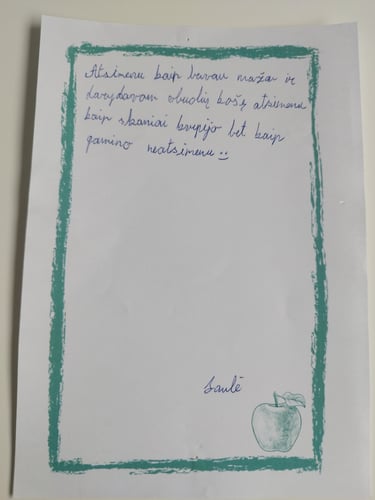 Atsimenu kaip buvau maža ir
daryd​avom obuolių košę atsimenu
kaip skaniai kvepėjo bet kaip
gamino neatsimenu :)
Saulė